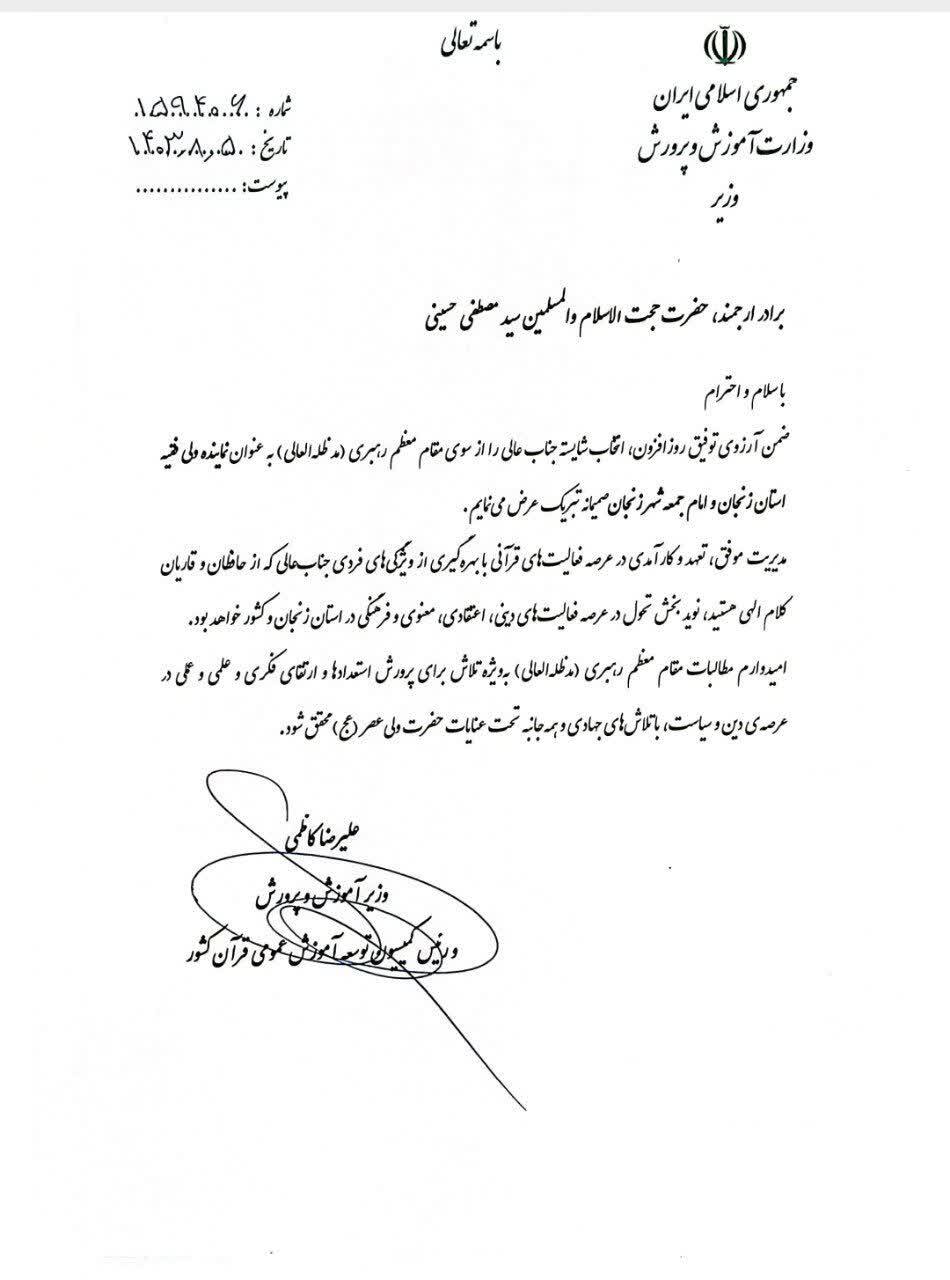 باسمه تعالی
جمهوری اسلامی ایران
وزارت آموزش و پرورش
وزیر
شماره :
تاریخ : ۱۴۰۳،۸،۰۵
پیوست: ...............
برادر ارجمند، حضرت حجت الاسلام والمسلمین سید مصطفی حسینی
با سلام و احترام
ضمن آرزوی توفیق روز افزون، انتخاب شایسته جناب عالی را از سوی مقام معظم رهبری (مد ظله العالی) به عنوان نماینده ولی فقیه
استان زنجان و امام جمعه شهر زنجان صمیمانه تبریک عرض می نمایم.
مدیریت موفق، تعهد و کارآمدی در عرصه فعالیت های قرآنی با بهره گیری از ویژگی های فردی جناب عالی که از حافظان و قاریان
کلام الهی هستید، نوید بخش تحول در عرصه فعالیت های دینی، اعتقادی، معنوی و فرهنگی در استان زنجان و کشور خواهد بود.
امیدوارم مطالبات مقام معظم رهبری (مدظله العالی) به ویژه تلاش برای پرورش استعدادها و ارتقای فکری و علمی و عملی در
عرصه ی دین و سیاست، با تلاش های جهادی و همه جانبه تحت عنایات حضرت ولی عصر (عج) محقق شود.
علیرضا کاظمی
وزیر آموزش و پرورش
و رئیس کمیسیون توسعه آموزش عمومی قرآن کشور